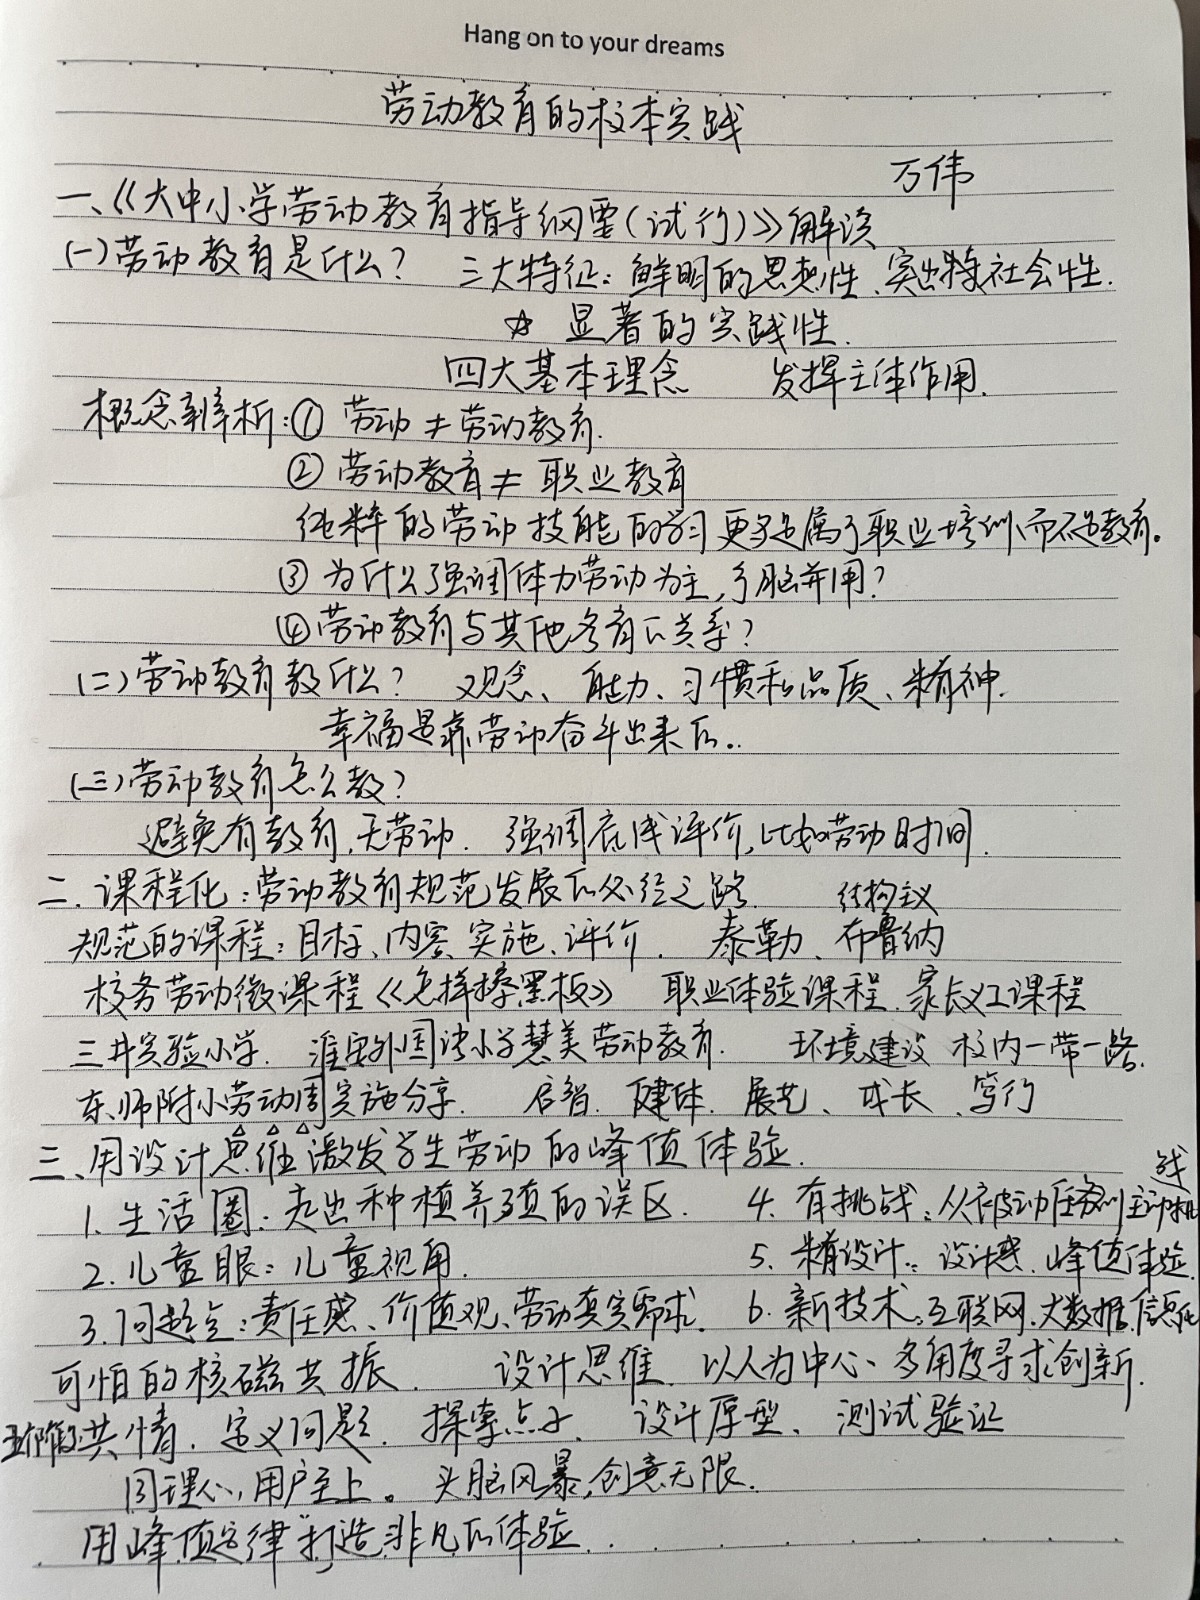 Hang on to your dreams
劳动教育的校本实践
万伟
一、《大中小学劳动教育指导纲要(试行)》解读
(一)劳动教育是什么? 三大特征:鲜明的思想性、突出的社会性.
☆ 显著的实践性.
四大基本理念 发挥主体作用.
概念辨析:① 劳动≠劳动教育.
② 劳动教育≠职业教育
纯粹的劳动技能的学习更多是属于职业培训,而不是教育。
③ 为什么强调体力劳动为主,手脑并用?
④劳动教育与其他各育的关系?
(二)劳动教育教什么? 观念、能力、习惯和品质、精神.
幸福是靠劳动奋斗出来的.
(三)劳动教育怎么教?
避免有教育,无劳动. 强调底线评价,比如劳动时间.
二.课程化:劳动教育规范发展的必经之路. 结构主义
规范的课程:目标、内容、实施、评价. 泰勒、布鲁纳
校务劳动微课程《怎样擦黑板》 职业体验课程.家长义工课程
三井实验小学. 淮安外国语小学慧美劳动教育. 环境建设 校内一带一路.
东师附小劳动周实施分享. 启智.健体.展艺、成长、笃行
三、用设计思维激发学生劳动的峰值体验.
1.生活圈:走出种植养殖的误区. 4.有挑战:从被动任务到主动挑战
2.儿童眼:儿童视角. 5.精设计:设计感.峰值体验.
3.问题点:责任感、价值观、劳动真实需求. 6.新技术:互联网.大数据.信息化
可怕的核磁共振. 设计思维.以人为中心、多角度寻求创新.
五个阶段:共情.定义问题.探索点子、设计原型、测试验证
同理心,用户至上。头脑风暴,创意无限.
用"峰值定律"打造非凡的体验.